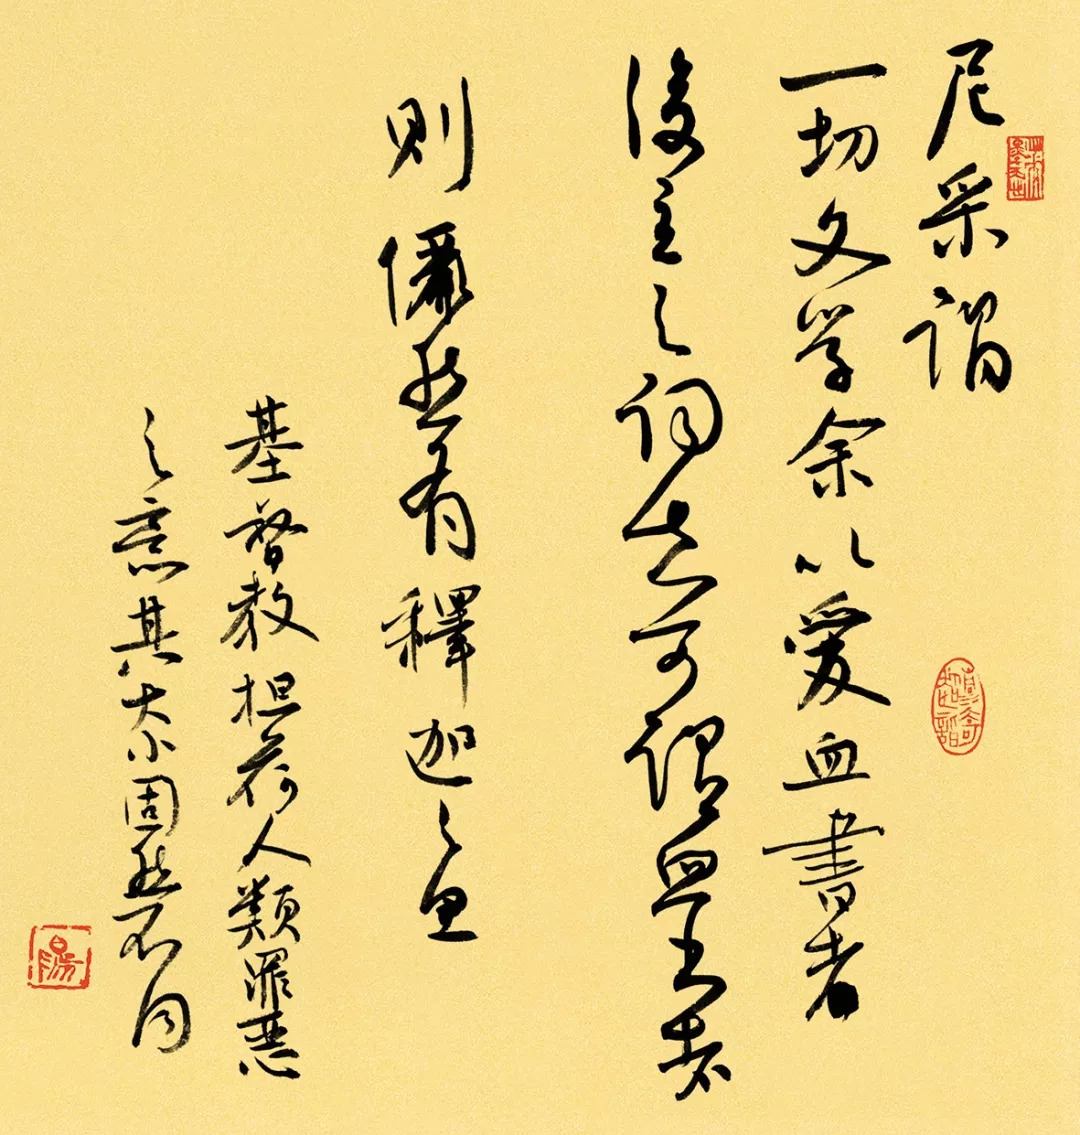 尼采謂
一切文学余以愛血書者
後主之词真可謂血书者
則儼然有釋迦之
基督教担荷人類罪恶
之意其大小固然不同